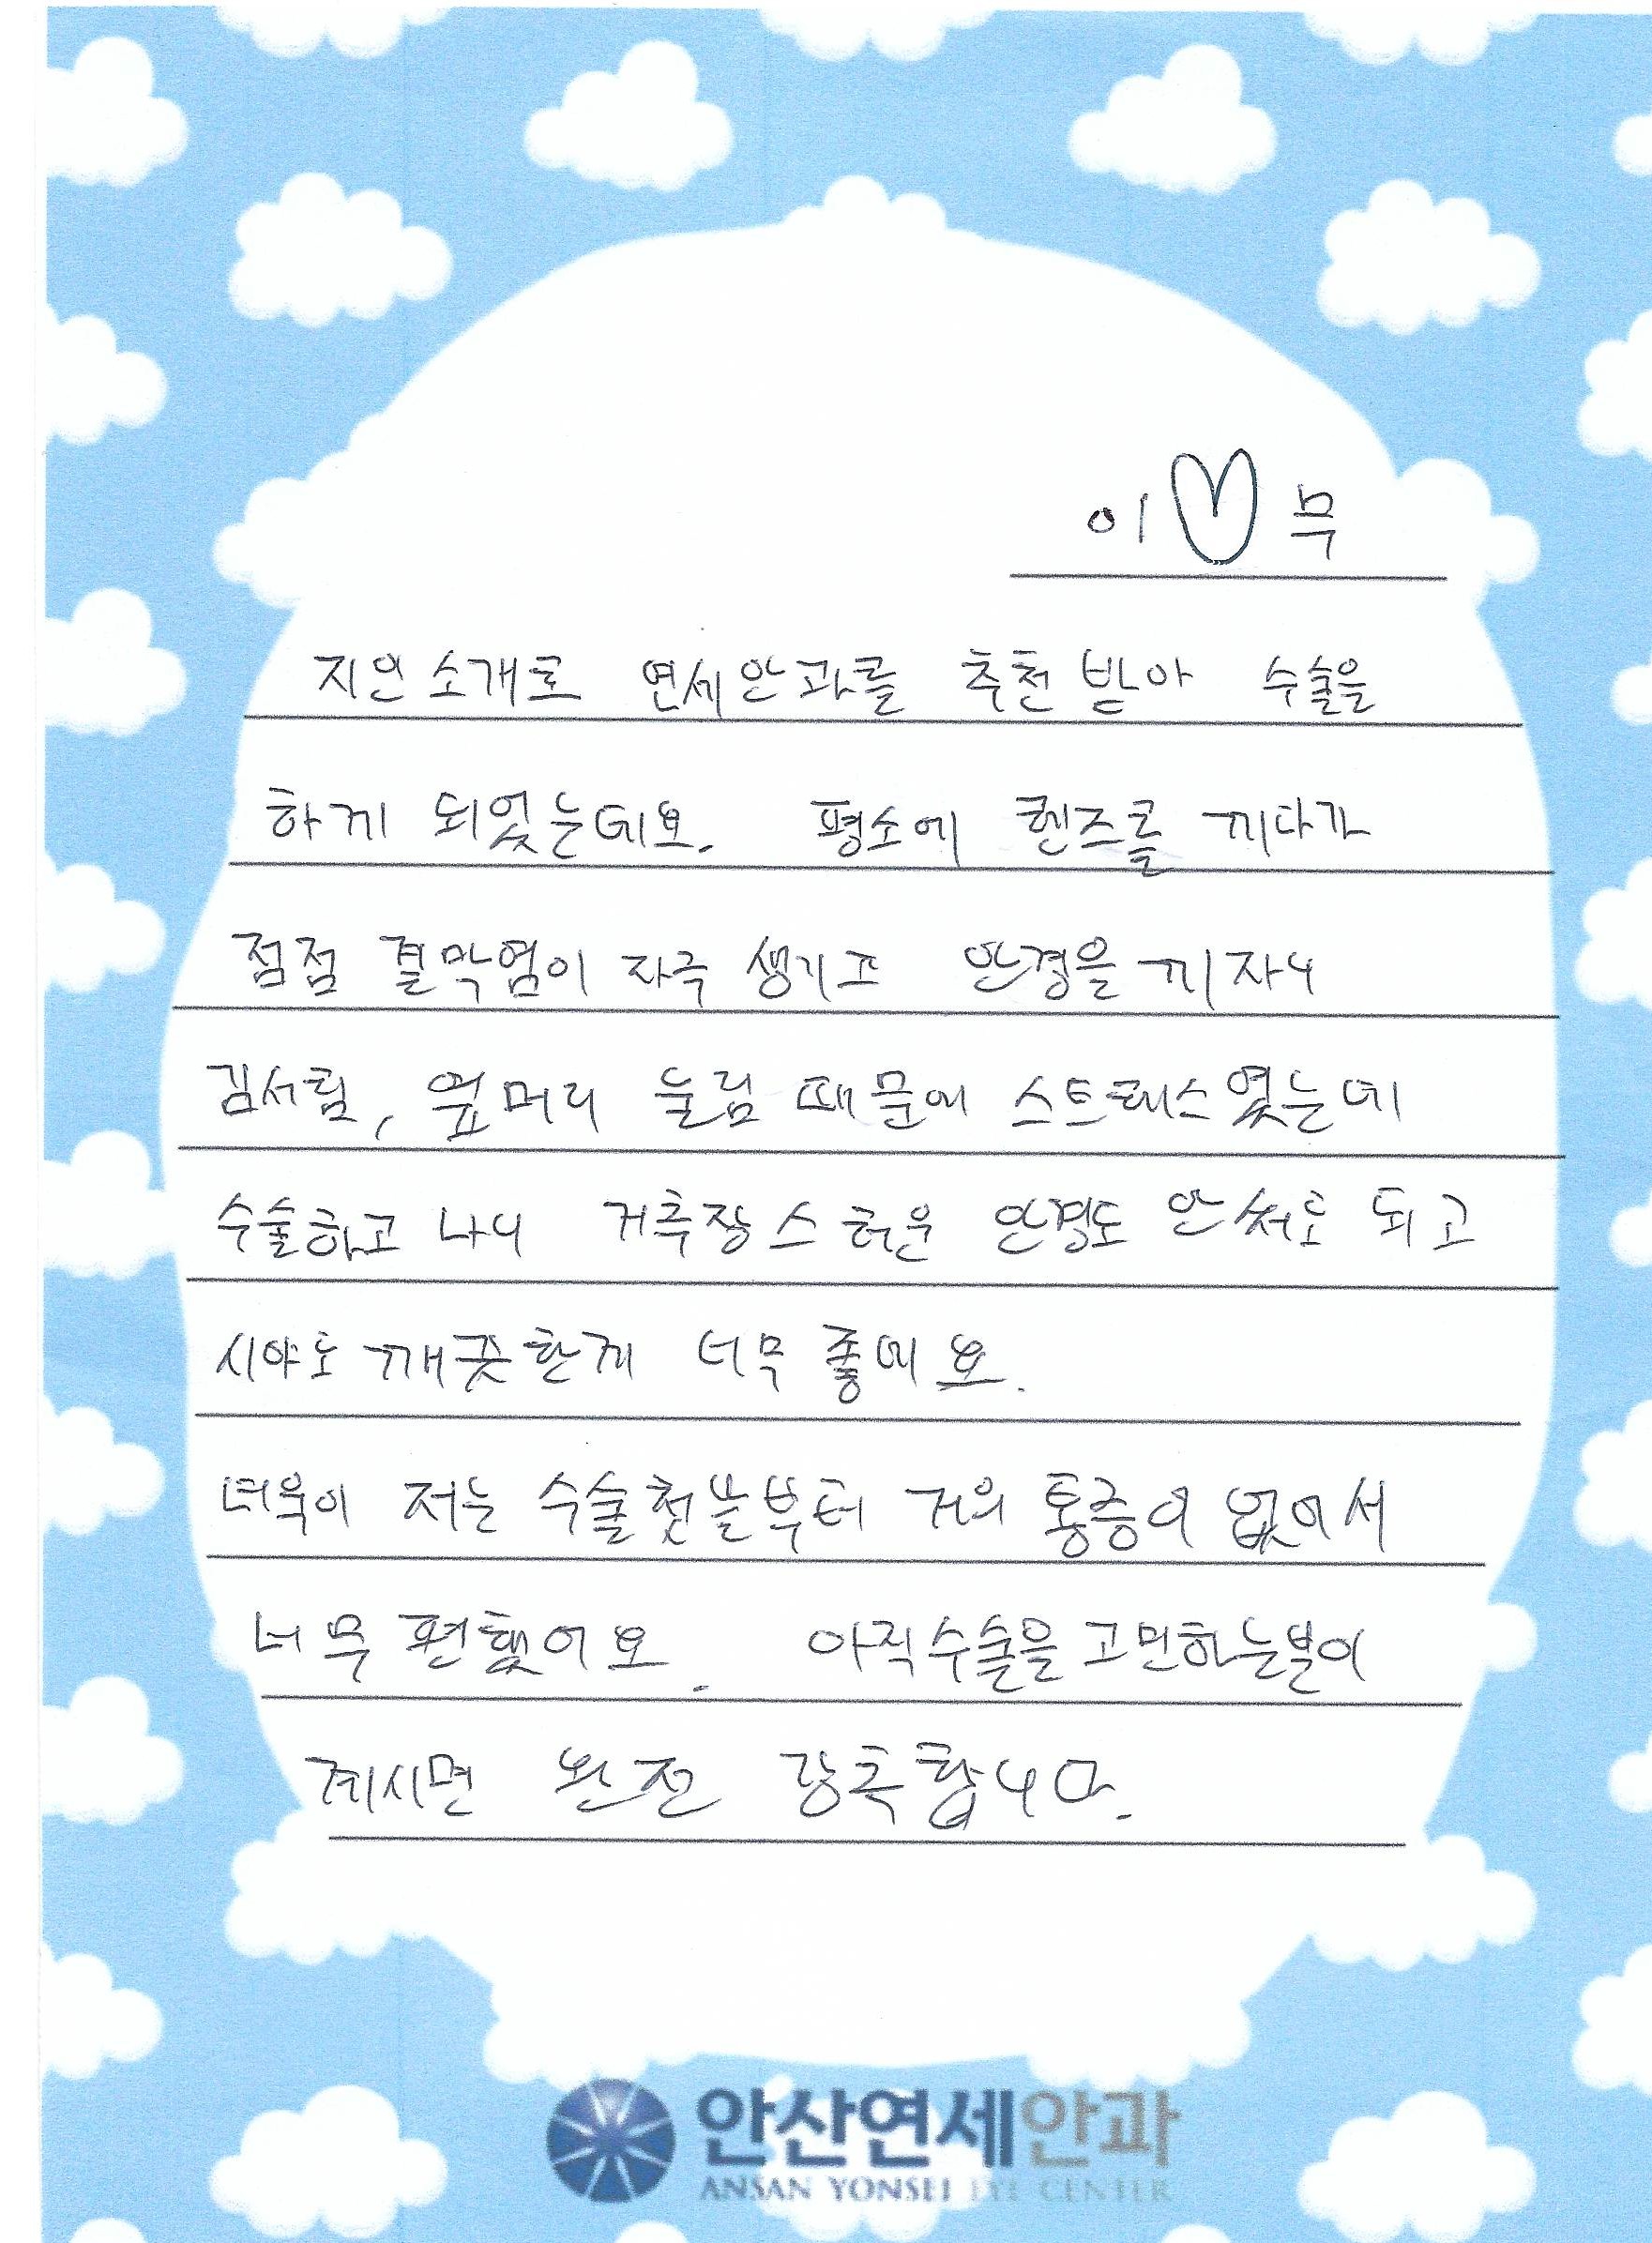 이♡무
지인소개로 연세안과를 추천 받아 수술을
하게 되었는데요. 평소에 렌즈를 끼다가
점점 결막염이 자주 생기고 안경을 끼자니
김서림, 옆머리 눌림 때문에 스트레스였는데
수술하고 나니 거추장스러운 안경도 안써도 되고
시야도 깨끗한게 너무 좋네요.
더욱이 저는 수술첫날부터 거의 통증이 없어서
너무 편했어요. 아직수술을 고민하는분이
계시면 완전 강추합니다.
안산연세안과
ANSAN YONSEI EYE CENTER